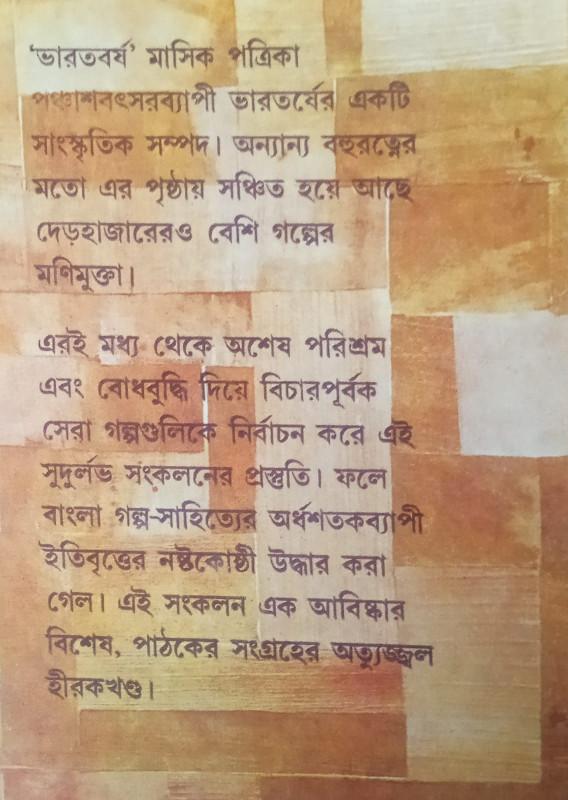 ‘ভারতবর্ষ’ মাসিক পত্রিকা
পঞ্চাশবৎসরব্যাপী ভারতর্ষের একটি
সাংস্কৃতিক সম্পদ। অন্যান্য বহুরত্নের
মতো এর পৃষ্ঠায় সঞ্চিত হয়ে আছে
দেড়হাজারেরও বেশি গল্পের
মণিমুক্তা।
এরই মধ্য থেকে অশেষ পরিশ্রম
এবং বোধবুদ্ধি দিয়ে বিচারপূর্বক
সেরা গল্পগুলিকে নির্বাচন করে এই
সুদুর্লভ সংকলনের প্রস্তুতি। ফলে
বাংলা গল্প-সাহিত্যের অর্ধশতকব্যাপী
ইতিবৃত্তের নষ্টকোষ্ঠী উদ্ধার করা
গেল। এই সংকলন এক আবিষ্কার
বিশেষ, পাঠকের সংগ্রহের অত্যুজ্জ্বল
হীরকখণ্ড।